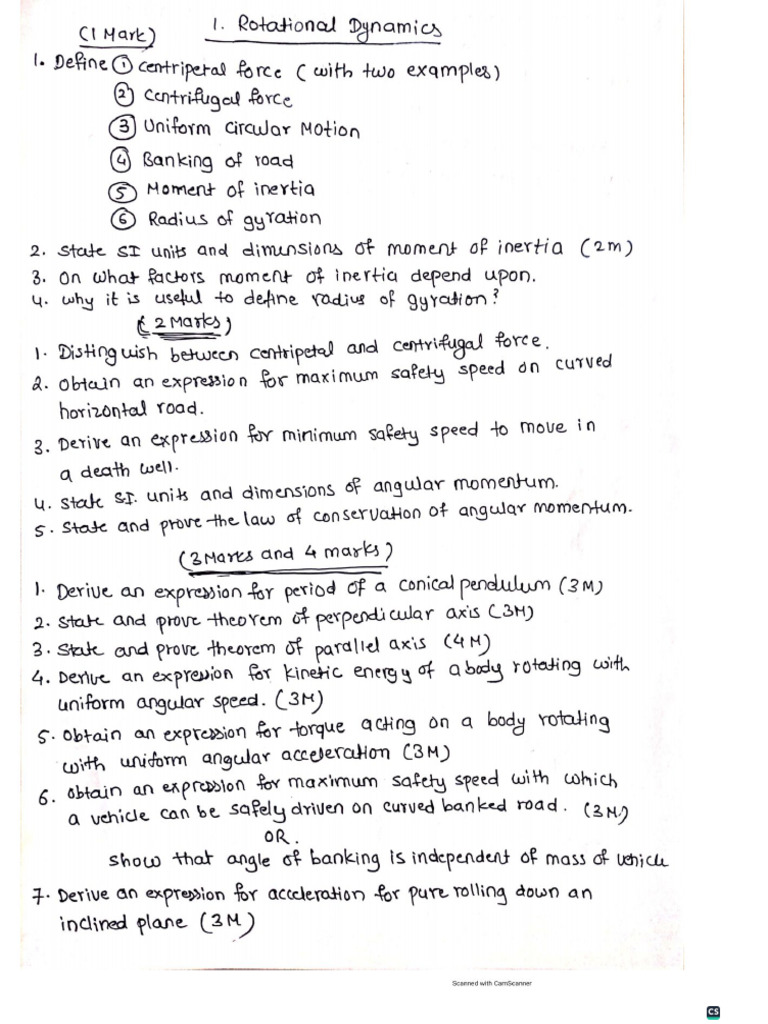 1. Rotational Dynamics
(1 Mark)
1. Define ① centripetal force (with two examples)
② Centrifugal force
③ Uniform Circular Motion
④ Banking of road
⑤ Moment of inertia
⑥ Radius of gyration
2. State SI units and dimensions of moment of inertia (2m)
3. On what factors moment of inertia depend upon.
4. why it is useful to define radius of gyration?
(2 Marks)
1. Distinguish between centripetal and centrifugal force.
2. Obtain an expression for maximum safety speed on curved
horizontal road.
3. Derive an expression for minimum safety speed to move in
a death well.
4. State SI. units and dimensions of angular momentum.
5. State and prove the law of conservation of angular momentum.
(3 Marks and 4 marks)
1. Derive an expression for period of a conical pendulum (3M)
2. State and prove theorem of perpendicular axis (3M)
3. State and prove theorem of parallel axis (4M)
4. Derive an expression for kinetic energy of a body rotating with
uniform angular speed. (3M)
5. Obtain an expression for torque acting on a body rotating
with uniform angular acceleration (3M)
6. Obtain an expression for maximum safety speed with which
a vehicle can be safely driven on curved banked road. (3M)
OR.
Show that angle of banking is independent of mass of vehicle
7. Derive an expression for acceleration for pure rolling down an
inclined plane (3M)
Scanned with CamScanner
CS